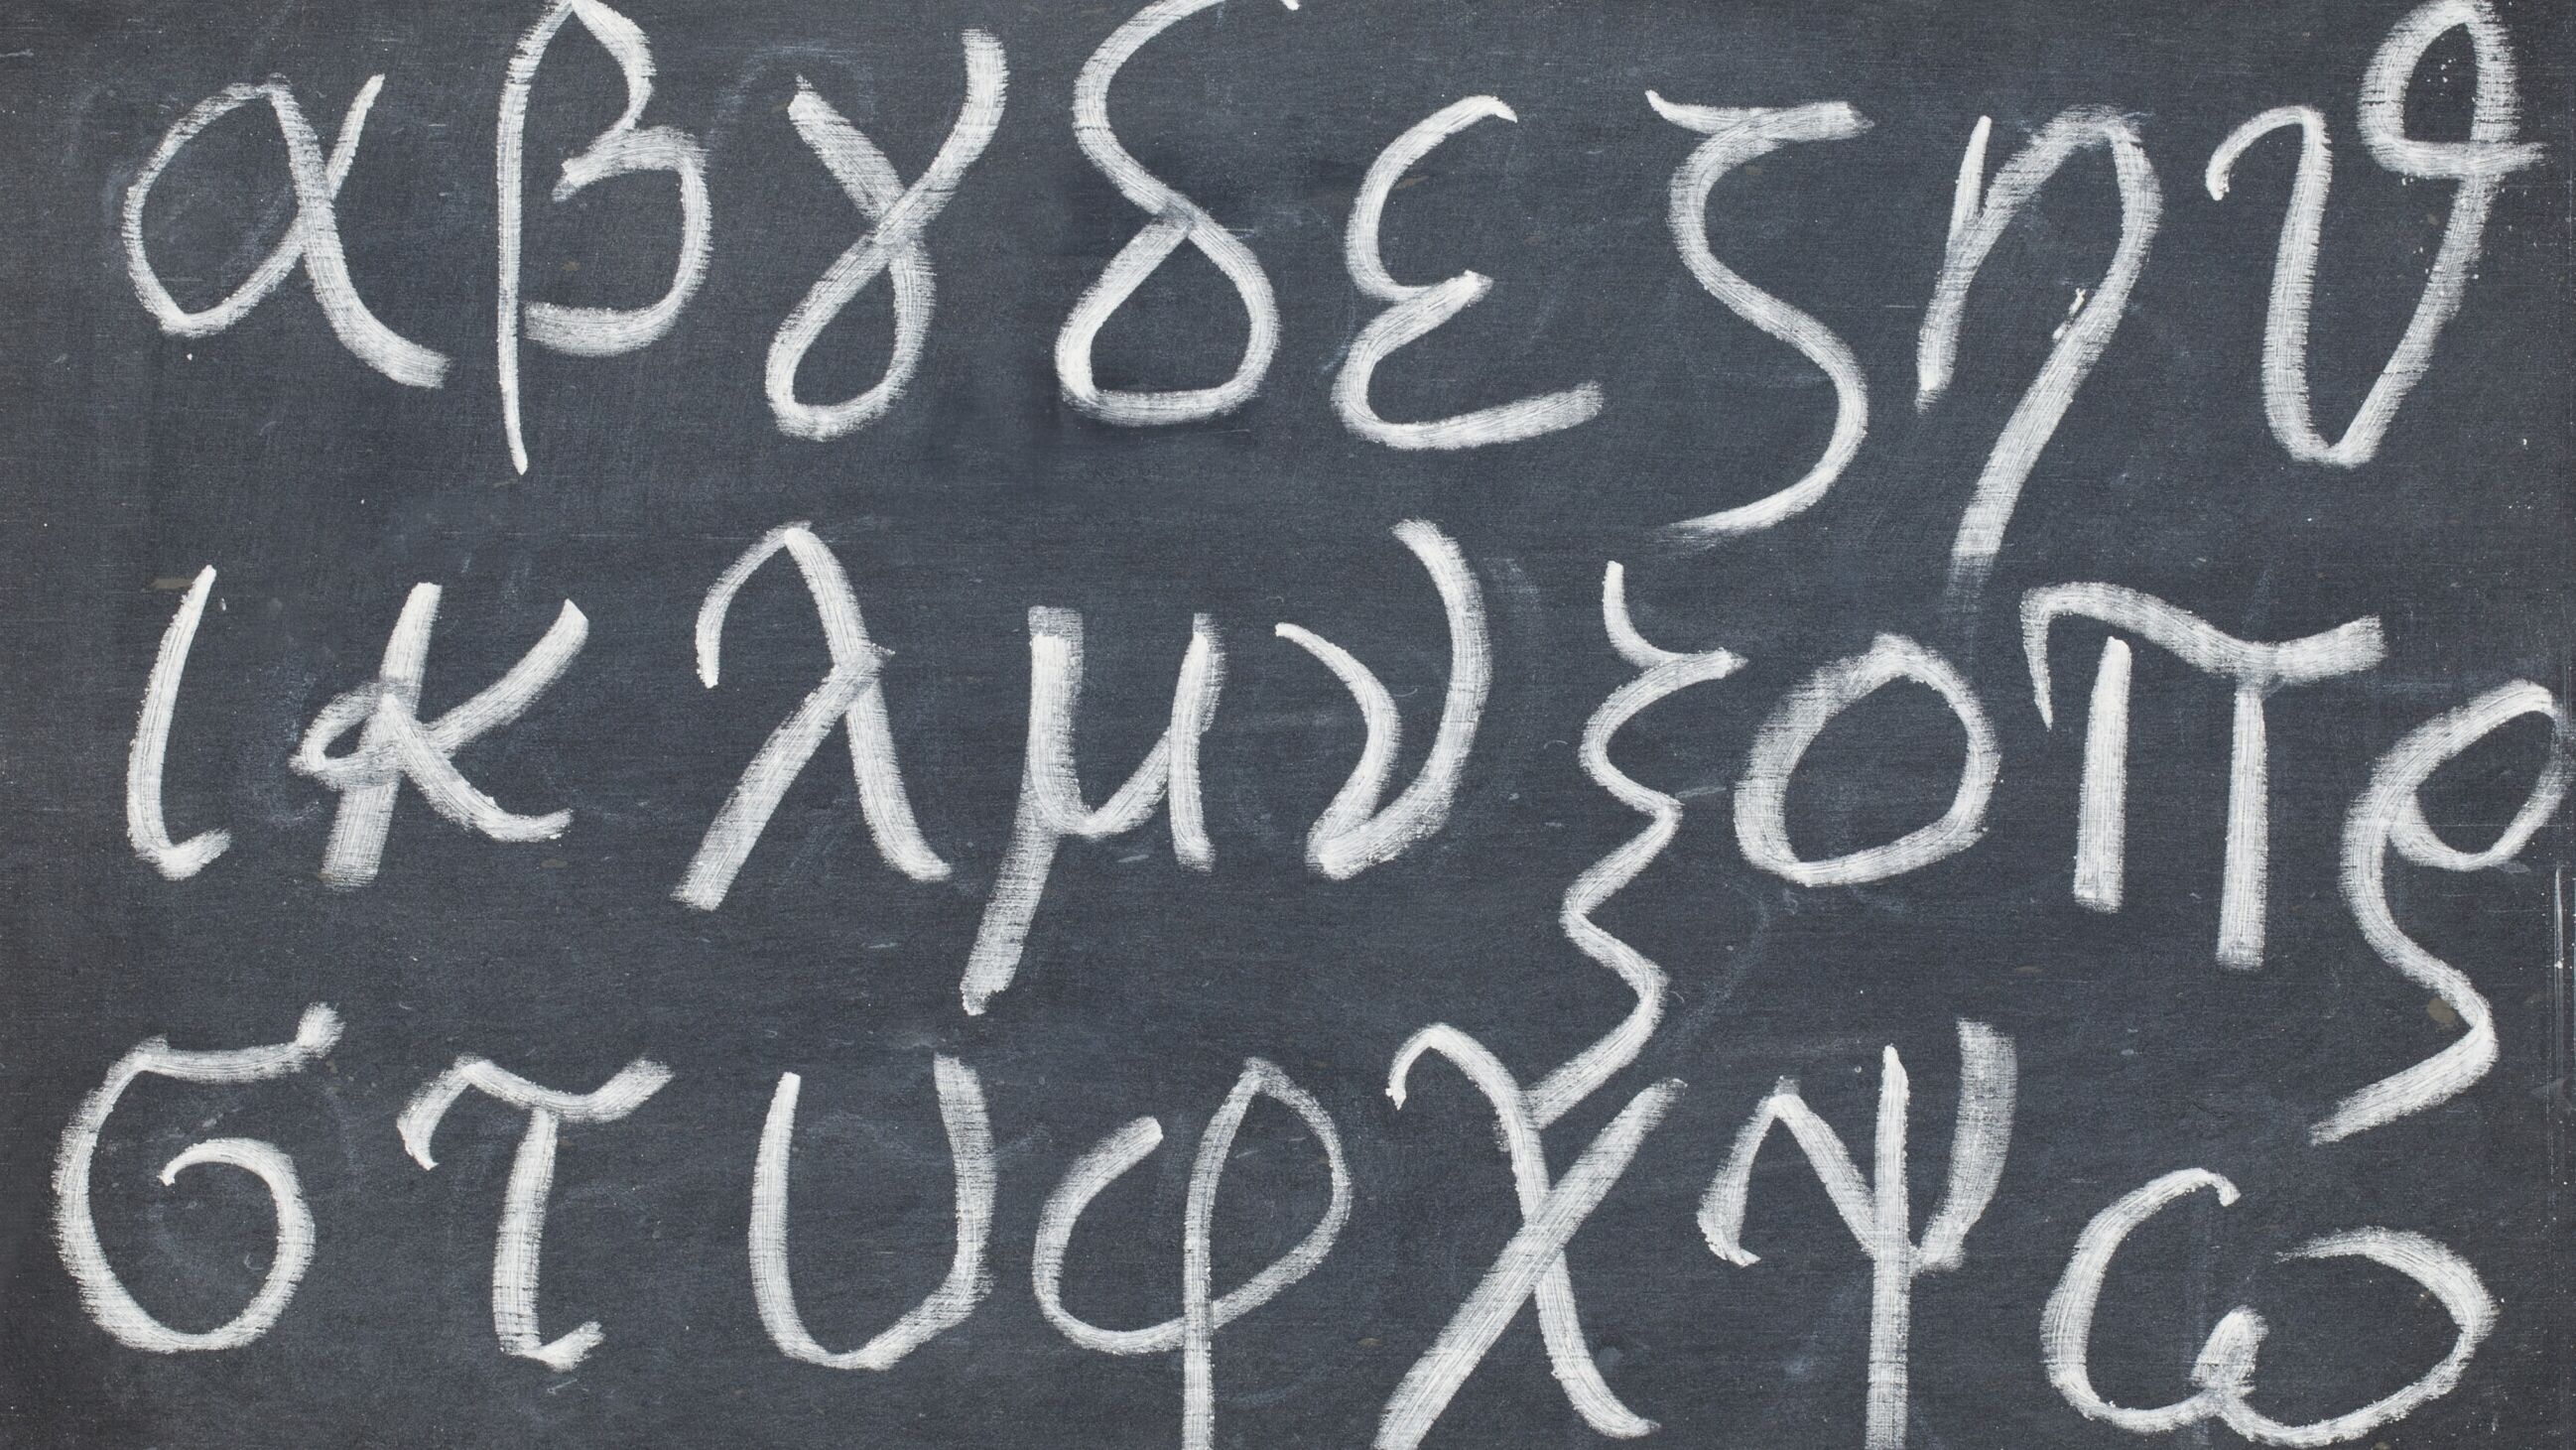 α β γ δ ε ζ η ϑ
ι κ λ μ ν ξ ο π ρ
σ τ υ φ χ ψ ω